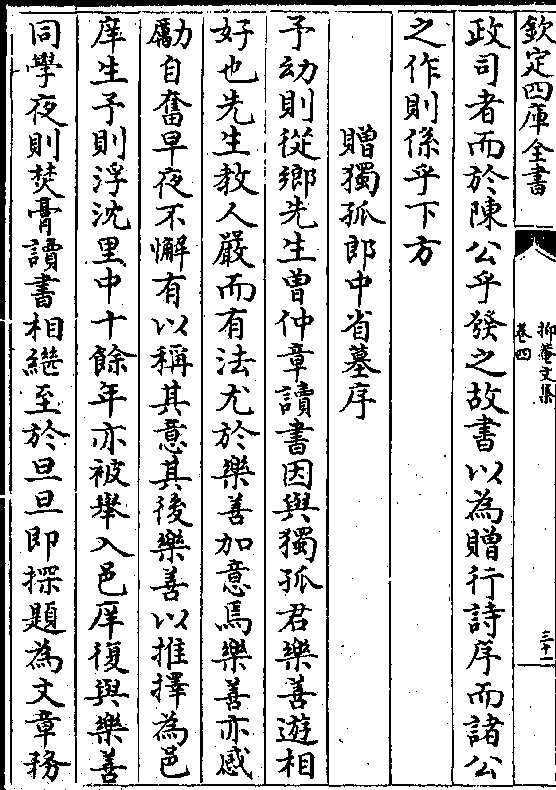 欽定四庫全書
抑菴文集
卷四
三十一
政司者而於陳公乎發之故書以為贈行詩序而諸公
之作則係乎下方
贈獨孤郎中省墓序
予幼則從鄉先生曾仲章讀書因與獨孤君樂善遊相
好也先生教人嚴而有法尤於樂善加意焉樂善亦感
勵自奮早夜不懈有以稱其意其後樂善以推擇為邑
庠生予則浮沈里中十餘年亦被舉入邑庠復與樂善
同學夜則焚膏讀書相繼至於旦旦即探題為文章務